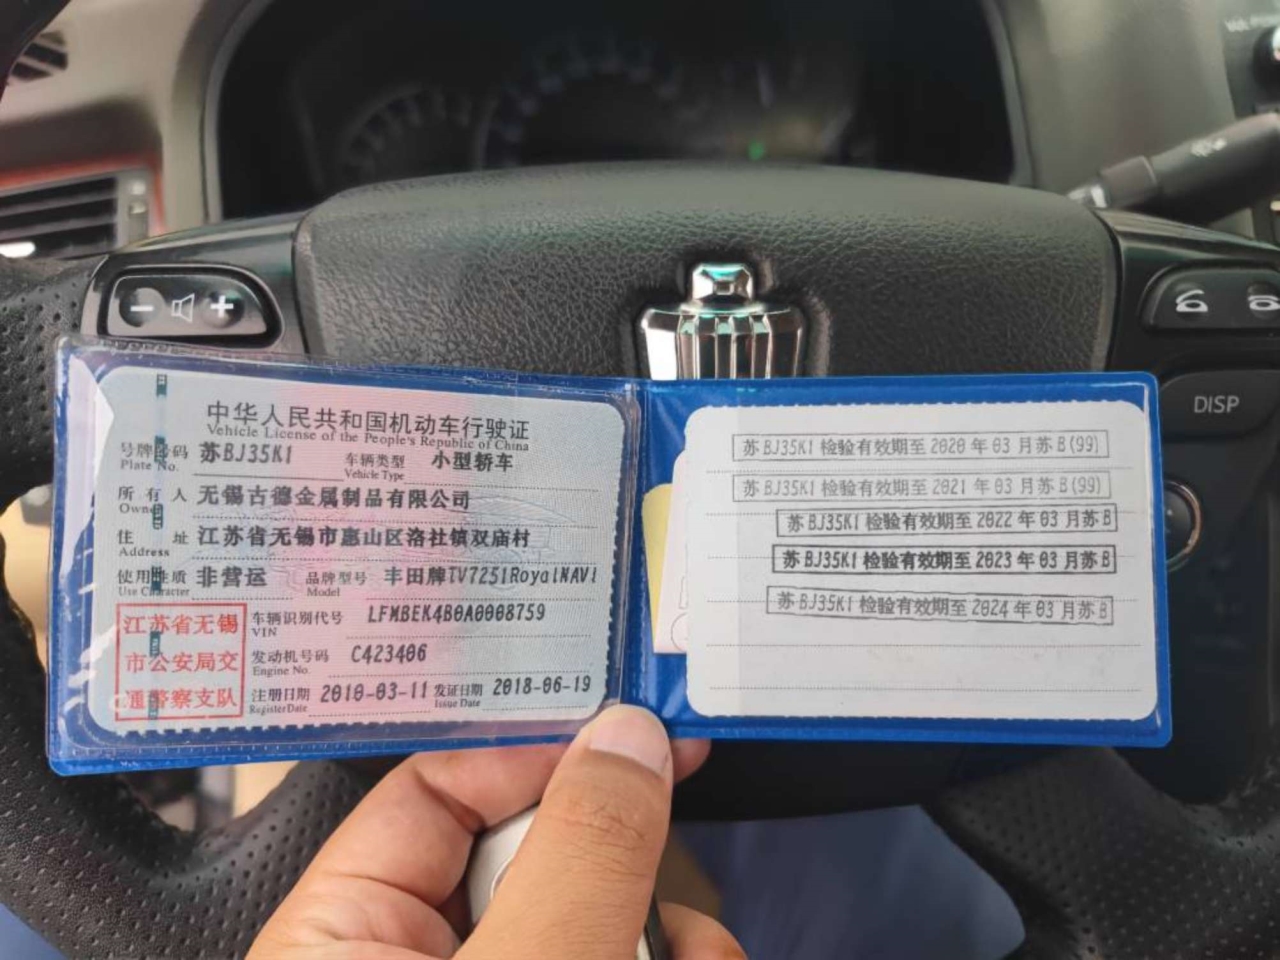 中华人民共和国机动车行驶证
Vehicle License of the People's Republic of China
号牌号码 苏BJ35K1 车辆类型 小型轿车
Plate No. Vehicle Type
所有人 无锡古德金属制品有限公司
Owner
住址 江苏省无锡市惠山区洛社镇双庙村
Address
使用性质 非营运 品牌型号 丰田牌TV7251RoyalNAVI
Use Character Model
江苏省无锡
市公安局交
通警察支队
车辆识别代号 LFMBEK4B0A0008759
VIN
发动机号码 C423406
Engine No.
注册日期 2010-03-11 发证日期 2018-06-19
Register Date Issue Date
苏BJ35K1 检验有效期至 2020 年 03 月苏B(99)
苏BJ35K1 检验有效期至 2021 年 03 月苏B(99)
苏BJ35K1 检验有效期至 2022 年 03 月苏B
苏BJ35K1 检验有效期至 2023 年 03 月苏B
苏BJ35K1 检验有效期至 2024 年 03 月苏B
DISP